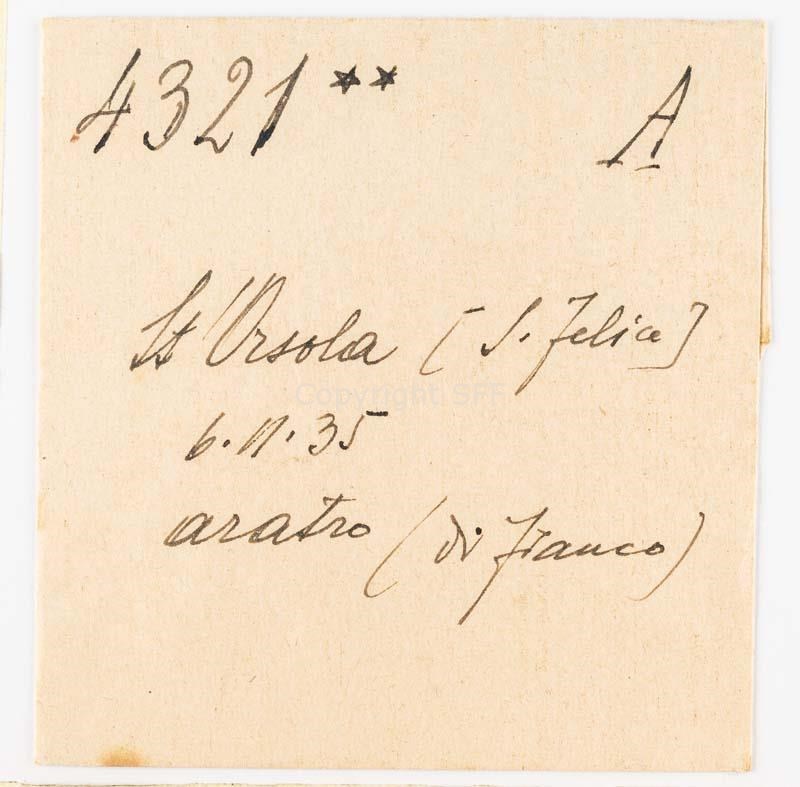 4321 ** A
St Orsola [S. Felice]
6.11.35
aratro (di fianco)
Copyright SFF